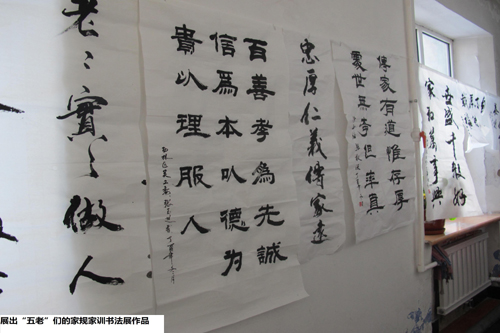 老〻實〻做人
百善孝為先誠
信爲本以德为
貴以理服人
忠厚仁義傳家遠
傳家有道惟存厚
處世無奇但率真
世盛千般好
家和萬事興
展出“五老”们的家规家训书法展作品